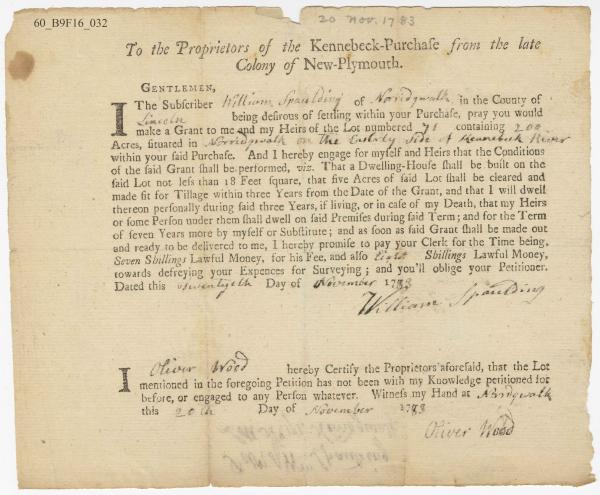 60_B9F16_032
20 Nov. 1783
To the Proprietors of the Kennebeck-Purchaſe from the late
Colony of New-Plymouth.
GENTLEMEN,
I The Subſcriber William Spaulding of Norridgwalk in the County of
Lincoln being deſirous of ſettling within your Purchaſe, pray you would
make a Grant to me and my Heirs of the Lot numbered 71 containing 200
Acres, ſituated in Norridgwalk on the Easterly Side of Kennebeck River
within your ſaid Purchaſe. And I hereby engage for myſelf and Heirs that the Conditions
of the ſaid Grant ſhall be performed, viz. That a Dwelling-Houſe ſhall be built on the
ſaid Lot not leſs than 18 Feet ſquare, that five Acres of ſaid Lot ſhall be cleared and
made fit for Tillage within three Years from the Date of the Grant, and that I will dwell
thereon perſonally during ſaid three Years, if living, or in caſe of my Death, that my Heirs
or ſome Perſon under them ſhall dwell on ſaid Premiſes during ſaid Term; and for the Term
of ſeven Years more by myſelf or Subſtitute; and as ſoon as ſaid Grant ſhall be made out
and ready to be delivered to me, I hereby promiſe to pay your Clerk for the Time being,
Seven Shillings Lawful Money, for his Fee, and alſo Eight Shillings Lawful Money,
towards defreying your Expences for Surveying; and you'll oblige your Petitioner.
Dated this Day of November 1783
William Spaulding
I Oliver Wood hereby Certify the Proprietors aforeſaid, that the Lot
mentioned in the foregoing Petition has not been with my Knowledge petitioned for
before, or engaged to any Perſon whatever. Witneſs my Hand at Noridgwalk
this 20th Day of November 1783
Oliver Wood